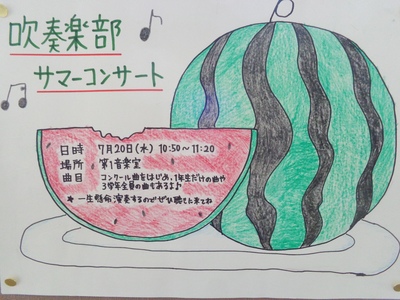 吹奏楽部
サマーコンサート
日時 7月20日(水) 10:50~11:20
場所 第1音楽室
曲目 コンクール曲をはじめ、1年生だけの曲や
3学年全員の曲もあるよ♪
★ 一生懸命演奏するのでぜひ聴きに来てね